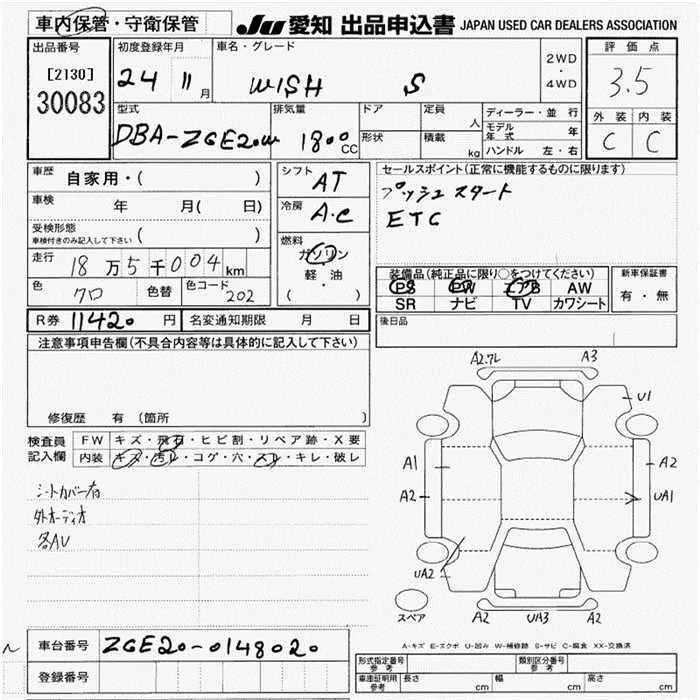 車内保管・守衛保管
JU 愛知 出品申込書 JAPAN USED CAR DEALERS ASSOCIATION
出品番号
[2130]
30083
初度登録年月
24 11月
車名・グレード
WISH S
2WD
・
4WD
評価点
3.5
外装 内装
C C
型式
DBA-ZGE20W
排気量
1800
CC
ドア
形状
定員
人
積載
kg
ディーラー・並行
モデル
年式 年
ハンドル 左・右
車歴 自家用・( )
車検 年 月( 日)
受検形態
車検付きのみ記入して下さい ( )
走行 18万5千004km
色 クロ 色替 色コード 202
シフト AT
冷房 A・C
燃料
ガソリン
軽・油
( ・ )
セールスポイント(正常に機能するものに限ります)
プッシュスタート
ETC
装備品(純正品に限り○をつけてください)
PS PW エアB AW
SR ナビ TV カワシート
新車保証書
有・無
後日品
R券 11420円 名変通知期限 月 日
注意事項申告欄(不具合内容等は具体的に記入して下さい)
修復歴 有 〔箇所 〕
検査員
記入欄
FW キズ・飛石・ヒビ割・リペア跡・X要
内装 キズ・汚レ・コゲ・穴・スレ・キレ・破レ
シートカバー有
外オーディオ
各AU
A2.7L A3
U1
A1 A2
A2 UA1
UA2
スペア
A2 UA3 A2
A-キズ E-エクボ U-凹み W-補修跡 S-サビ C-腐食 XX-交換済
車台番号 ZGE20-0148020
登録番号
形式指定番号
参考
類別区分番号
参考
車庫証明用
参考
長さ cm 幅 cm 高さ cm